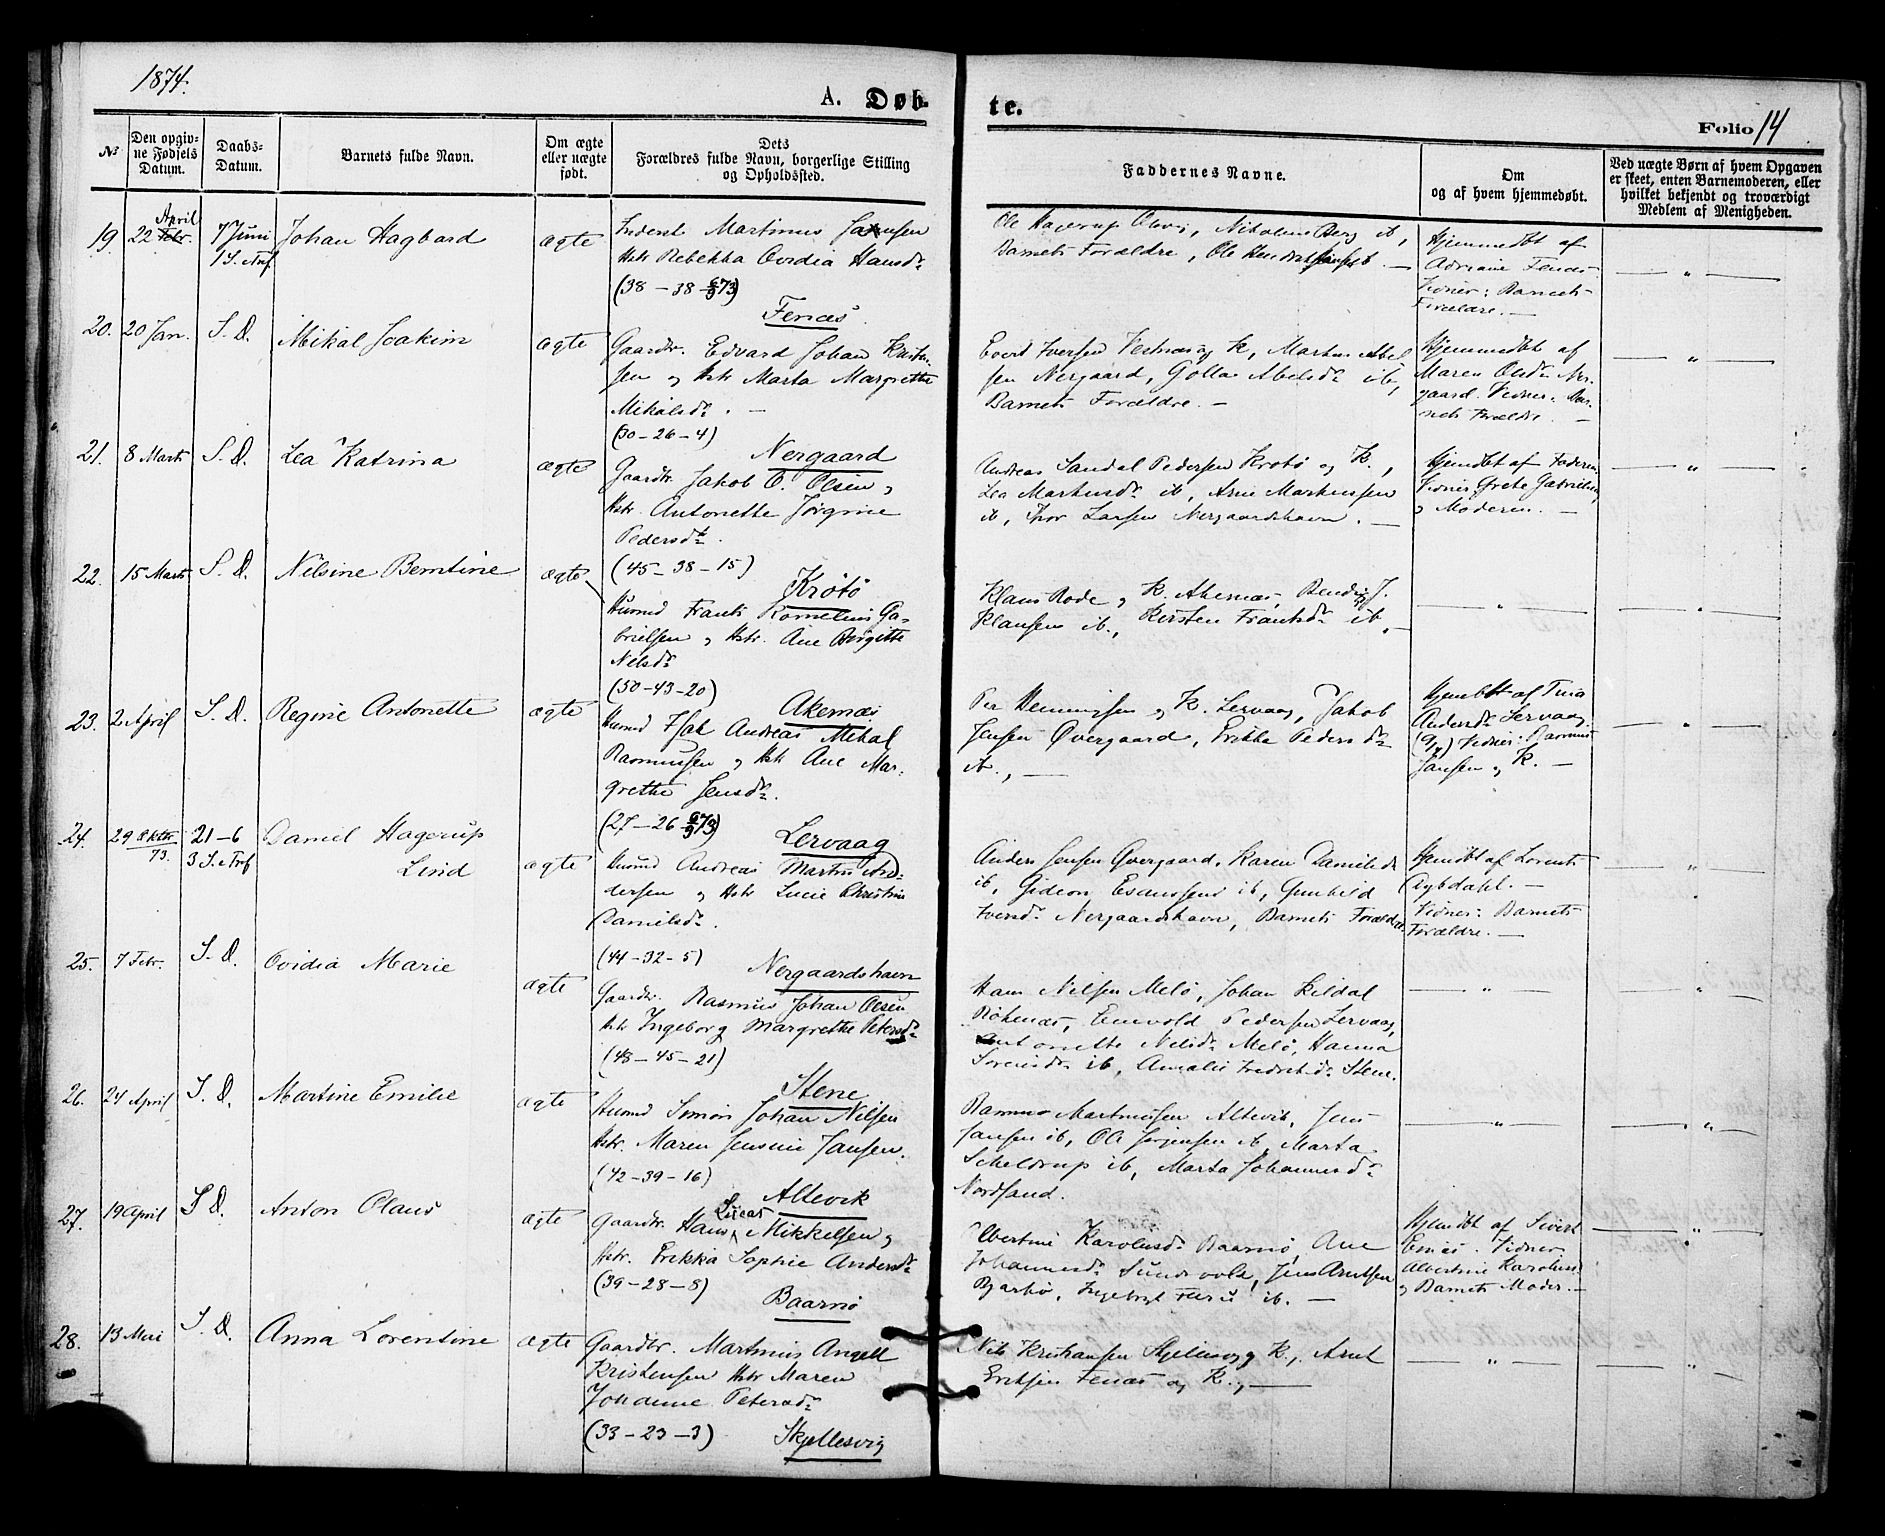 1874.
A. Døb-
te.
Folio 14
№
Den opgiv-
ne Fødsels
Datum.
Daabs-
Datum.
Barnets fulde Navn.
Om ægte
eller uægte
født.
Dets
Forældres fulde Navn, borgerlige Stilling
og Opholdssted.
Faddernes Navne.
Om
og af hvem hjemmedøbt.
Ved uægte Børn af hvem Opgaven
er skeet, enten Barnemoderen, eller
hvilket bekjendt og troværdigt
Medlem af Menigheden.
19. 22 April Febr. 7 Juni Johan Hagbard ægte
Inderst Martinus Jansen
Hstr Rebekka Ovidia Hansdr
(38 – 38 – 6/9 73)
Fenæs
Ole Hagerup Olsen, Nikoline Berg ib,
Barnets Forældre, Ole Hendriksen ib. —
Hjemmedbt af
Adriane Fenæs
Vidner: Barnets
Forældre. —
20. 20 Jan. S. D. Mikal Joakim ægte
Gaardbr. Edvard Johan Kristen-
sen og Hstr Marta Margrethe
Mikalsdr. —
(30 – 26 – 4)
Nergaard
Iversen og K, Martin Abel
sen Nergaard, Golla Abelsdr ib,
Barnets Forældre. —
Hjemmedbt af
Maren Olsdr Ner-
gaard. Vidner: Bar-
nets Forældre. —
21. 8 Marts S. D. Lea Katrina ægte
Gaardbr. Jakob O. Olsen og
Hstr. Antonette Jørgine
Pedersdtr.
(45 – 38 – 15)
Krøtø
Andreas Sandal Pedersen Krøtø og K.,
Lea Markusdr ib, Arne Markussen
ib, Thor Larsen Nergaardshavn. —
Hjemdbt af Faderen
Vidner Grete Gabrielsen
og Moderen. —
22. 15 Marts S. D. Nilsine Berntine ægte
Husmd Frants Kornelius Ga-
brielsen og Hstr. Ane Birgitte
Nilsdr
(50 – 43 – 20)
Akernæs
Klaus Rode og K. Akernæs, Bendig J.
Klausen ib., Kirsten Frantsdr ib. —
23. 2 April S. D. Regine Antonette ægte
Husmd Isak Andreas Mikal
Rasmussen og Hstr Ane Mar-
grethe Jensdr.
(27 – 26 – 6/9 73)
Lervaag
Per Henningsen og K. Lervaag, Jakob
Jensen Øvergaard, Erikka Pedersdr
ib., —
Hjemdbt af Tina
Andersdr Lervaag.
Vidner: Rasmus
Jansen og K. —
24. 29 Oktbr 73. 21–6 Daniel Hagerup
3 S. e Tref Lind ægte
Husmd Andreas Martin An-
dersen og Hstr Lucie Christine
Danielsdr.
(44 – 32 – 5)
Nergaardshavn
Anders Jensen Øvergaard, Karen Danielsdr
ib, Gideon Esaussen ib, Gunhild
Iversdr Nergaardshavn, Barnets Forældre.
Hjemdbt af Lorents
Dybdahl. —
Vidner: Barnets
Forældre. —
25. 7 Febr. S. D. Ovidia Marie ægte
Gaardbr. Rasmus Johan Olsen
Hstr Ingeborg Margrethe Petersdr
(48 – 45 – 21)
Stene
Hans Nilsen Melø, Johan Kildal
Røkenæs, Enevold Pedersen Lervaag,
Antonette Nilsdr Melø, Hanna
Sørensdr ib, Amalie Fredriksdr Stene.
26. 24 April S. D. Martine Emilie ægte
Husmd Simon Johan Nilsen
Hstr. Maren Jensine Jansen.
(42 – 39 – 16)
Altevik
Rasmus Martinussen Altevik, Jens
Jansen ib, Ole Jørgensen ib, Marta
Scheldrup ib, Marta Johannesdr
Nordsand.
27. 19 April S. D. Anton Olaus ægte
Gaardbr. Hans Lucas Mikkelsen og
Hstr. Erikka Sophie Andersdr
(39 – 28 – 8)
Baarnø
Albertine Karolusdr Baarnø, Ane
Johannesdr Sundsvold, Jens Arntsen
Bjarkø, Ingebrigt ib. —
Hjemdbt af Sivert
Enæs. Vidner
Albertine Karolusd
og Barnets Moder. —
28. 13 Mai S. D. Anna Lorentine ægte
Gaardbr. Martinus Angell
Kristensen Hstr Maren
Johanne Petersdr
(33 – 23 – 3)
Skjellesvig
Nils Kristiansen Skjellesvig og K., Arnt
Eriksen Fenæs og K., —